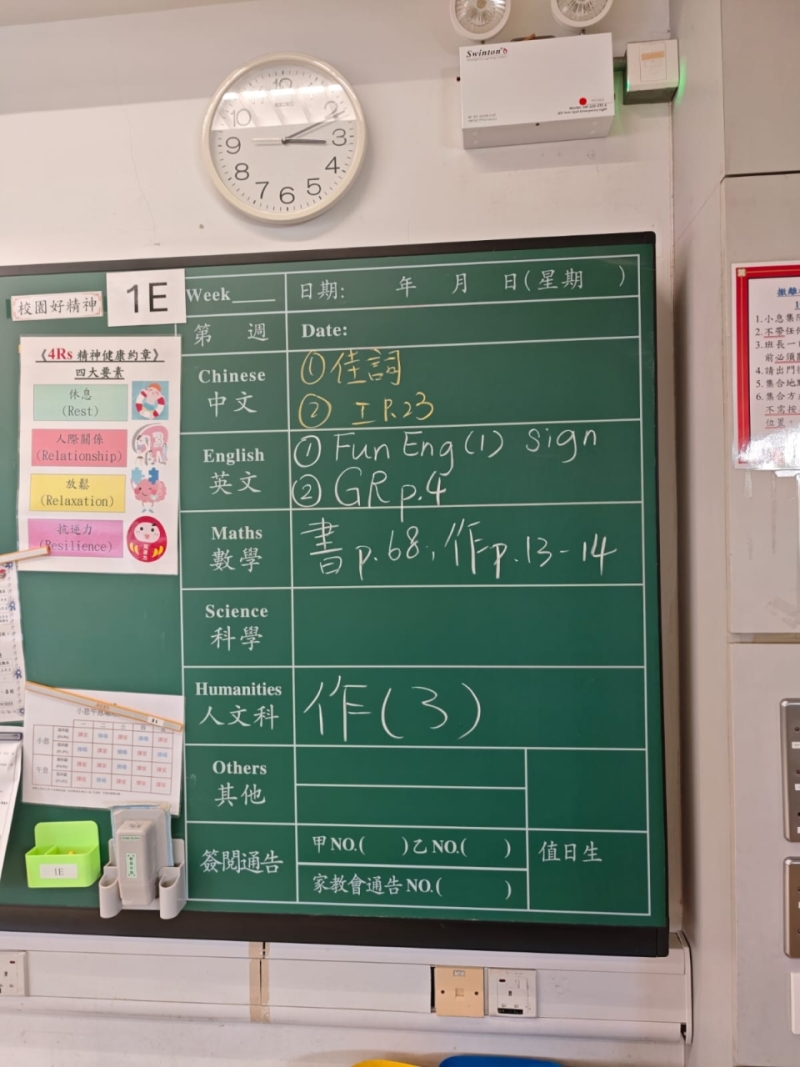 12
2
3
4
5
6
7
8
9
10
Swinton
校園好精神
1E
Week____
日期: 年 月 日(星期 )
第 週
Date:
《4Rs 精神健康約章》
四大要素
休息
(Rest)
人際關係
(Relationship)
放鬆
(Relaxation)
抗逆力
(Resilience)
Chinese
中文
①佳詞
② I P.23
English
英文
① Fun Eng (1) sign
② GR p.4
Maths
數學
書 p.68, 作 p.13-14
Science
科學
Humanities
人文科
作(3)
Others
其他
簽閱通告
甲NO.( )乙NO.( )
家教會通告NO.( )
值日生
1E
小息
午息
1.小息集
2.不帶任
3.班長一
前必須
4.請出門
5.集合地
6.集合方
不需按
位置。